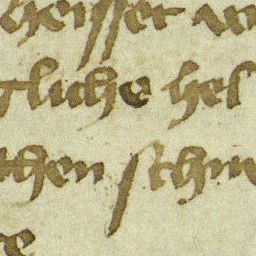 heisser
gliche hel
chen schm
e